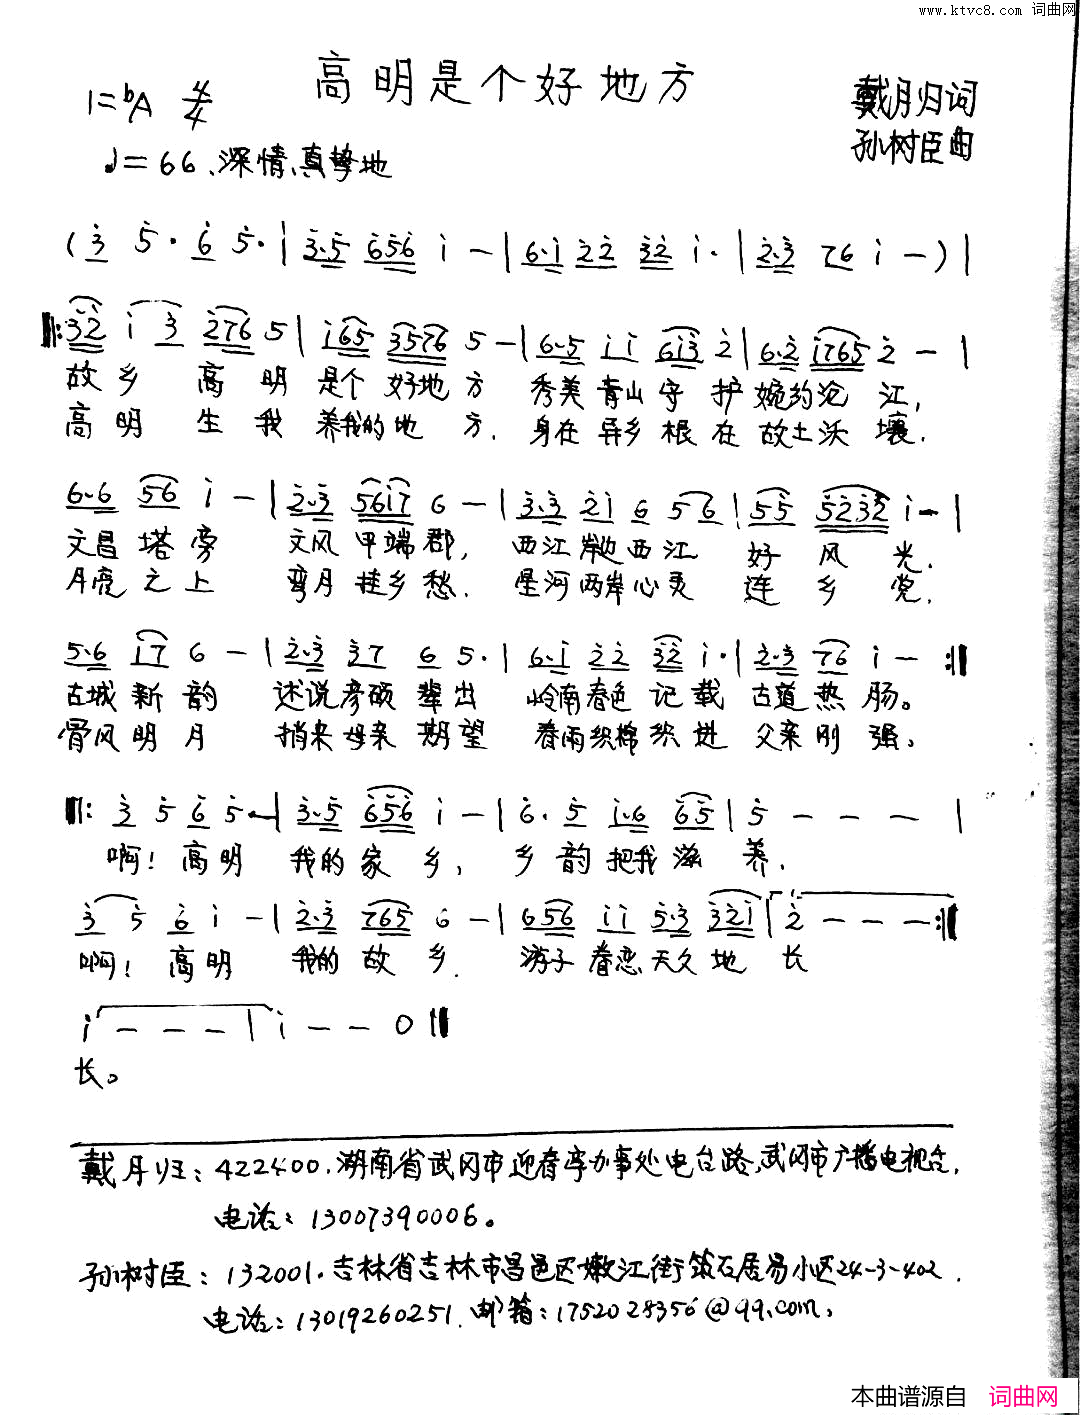 www.ktvc8.com 词曲网
高明是个好地方
1=♭A 4/4
戴月归词
♩=66、深情、真挚地
孙树臣曲
(3 5· 6 5·|3·5 656 i -|6·i 22 32 i·|2·3 76 i -)|
‖:32 i 3 276 5|i65 3576 5 -|6·5 ii 6i3 2|6·2 i765 2 -|
故乡 高明 是个 好地方 秀美青山守护婉约沧江,
高明 生我 养我的地方. 身在异乡根在故土沃壤.
6·6 56 i -|2·3 56i7 6 -|3·3 2i 6 56|55 5232 i -|
文昌塔旁 文风甲端郡, 西江岸边西江 好风光.
月亮之上 弯月挂乡愁. 星河两岸心灵 连乡党.
5·6 i7 6 -|2·3 37 6 5·|6·i 22 32 i·|2·3 76 i -:‖
古城新韵 述说彦硕辈出 岭南春色记载 古道热肠。
骨风明月 捎来母亲期望 春雨织棉织进 父亲刚强。
‖:3 5 6 5·|3·5 656 i -|6· 5 i·6 65|5 - - -|
啊!高明 我的家乡, 乡韵把我滋养.
3 5 6 i -|2·3 765 6 -|656 ii 5·3 32i|2 - - -:‖
啊!高明 我的故乡. 游子眷恋天久地长
i - - -|i - - 0‖
长。
戴月归:422400.湖南省武冈市迎春亭办事处电台路,武冈市广播电视台,
电话:13007390006。
孙树臣:132001.吉林省吉林市昌邑区嫩江街筑石居易小区24-3-402.
电话:13019260251.邮箱:1752028356@qq.com,
本曲谱源自 词曲网